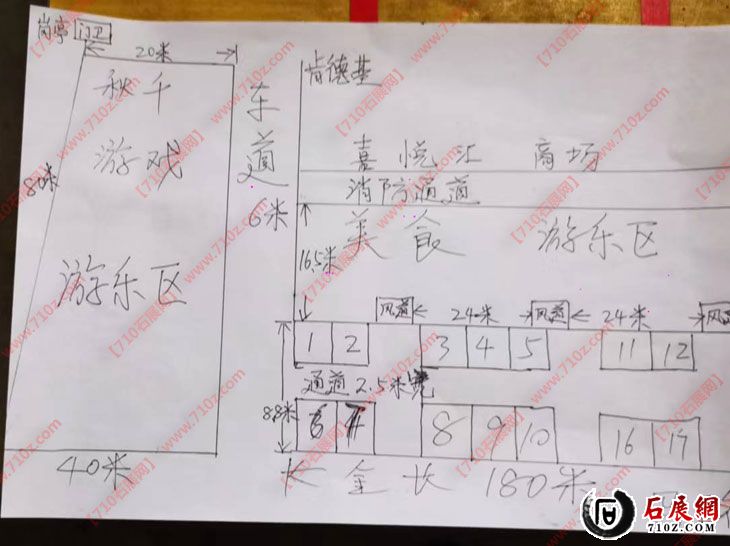 岗亭 门卫
20米
秋千
游戏
80米
游乐区
40米
车道
6米
肯德基
嘉悦汇 商场
消防通道
美食 游乐区
16.5米
风道 24米 风道 24米 风道
1 2 3 4 5 11 12
通道 2.5米宽
8.8米
8 9 10 16 17
长 全长 180米
【710石展网】 www.710z.com
石展網
710Z.COM